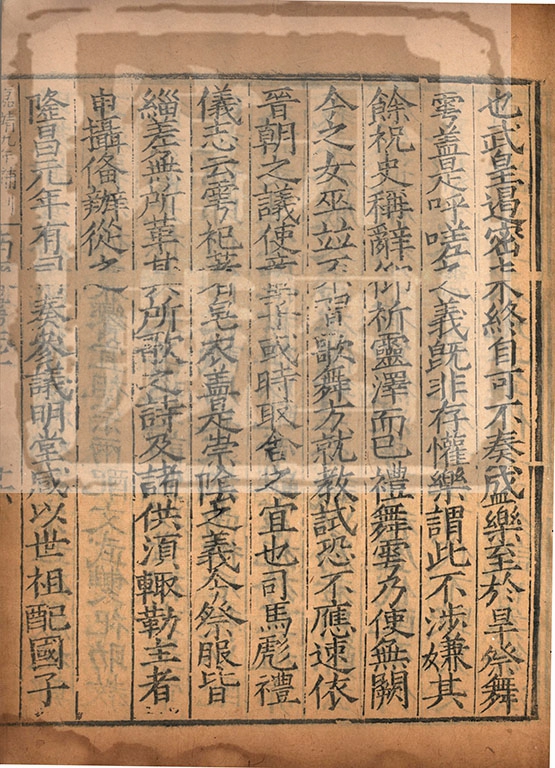 也武皇遏密未終自可不奏盛樂至於旱祭舞
雩盖是呼嗟之義既非存懽樂謂此不涉嫌其
餘祝史稱辭仰祈靈澤而已禮舞雩乃使無闕
今之女巫並不習歌舞方就教試恐不應速依
晉朝之議使童子或時取舍之宜也司馬彪禮
儀志云雩祀著皂衣盖是崇陰之義今祭服皆
緇差無所革其所歌之詩及諸供須輒勒主者
申攝俻辦從之
隆昌元年有司奏參議明堂咸以世祖配國子